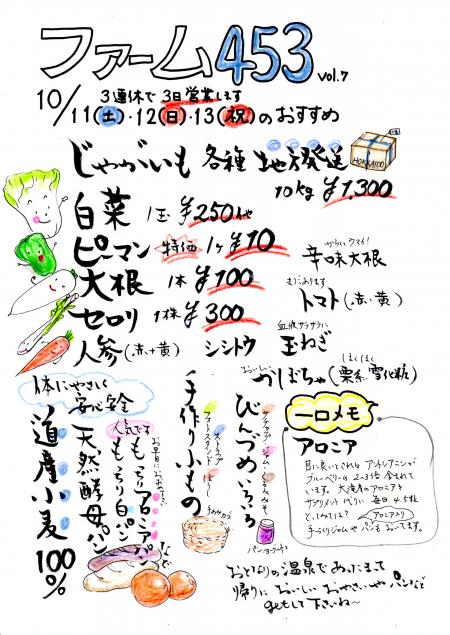 ファーム453 vol.7
3連休で3日営業します
10/11(土)・12(日)・13(祝)のおすすめ
じゃがいも 各種 地方発送
HOKKAIDO
10kg ¥1,300
白菜 1玉 ¥250
ピーマン 特価 1ヶ ¥10
からい ウマイ!
辛味大根
大根 1本 ¥100
まだあります
トマト(赤・黄)
セロリ 1株 ¥300
血液サラサラに
玉ねぎ
人参(赤+黄) シシトウ
おいしい
かぼちゃ(栗系・雪化粧)
ほくほく
体にやさしく
安心安全
道産小麦100%
天然酵母パン
人気です
もっちりアロニアパン
もっちり白パン
など
手作り小もの
ストラップ
びんづめいろいろ
ジャム
一口メモ
アロニア
目に良いとされるアントシアニンが
ブルーベリーの2~3倍含まれて
います。大滝産のアロニアを
サプリメント代りに毎日4~5粒
どうですか?
アロニア入り
手づくりジャムやパンもおいてます。
おとなりの温泉であったまって
帰りにおいしいおやさいやパンなど
getして下さいね~